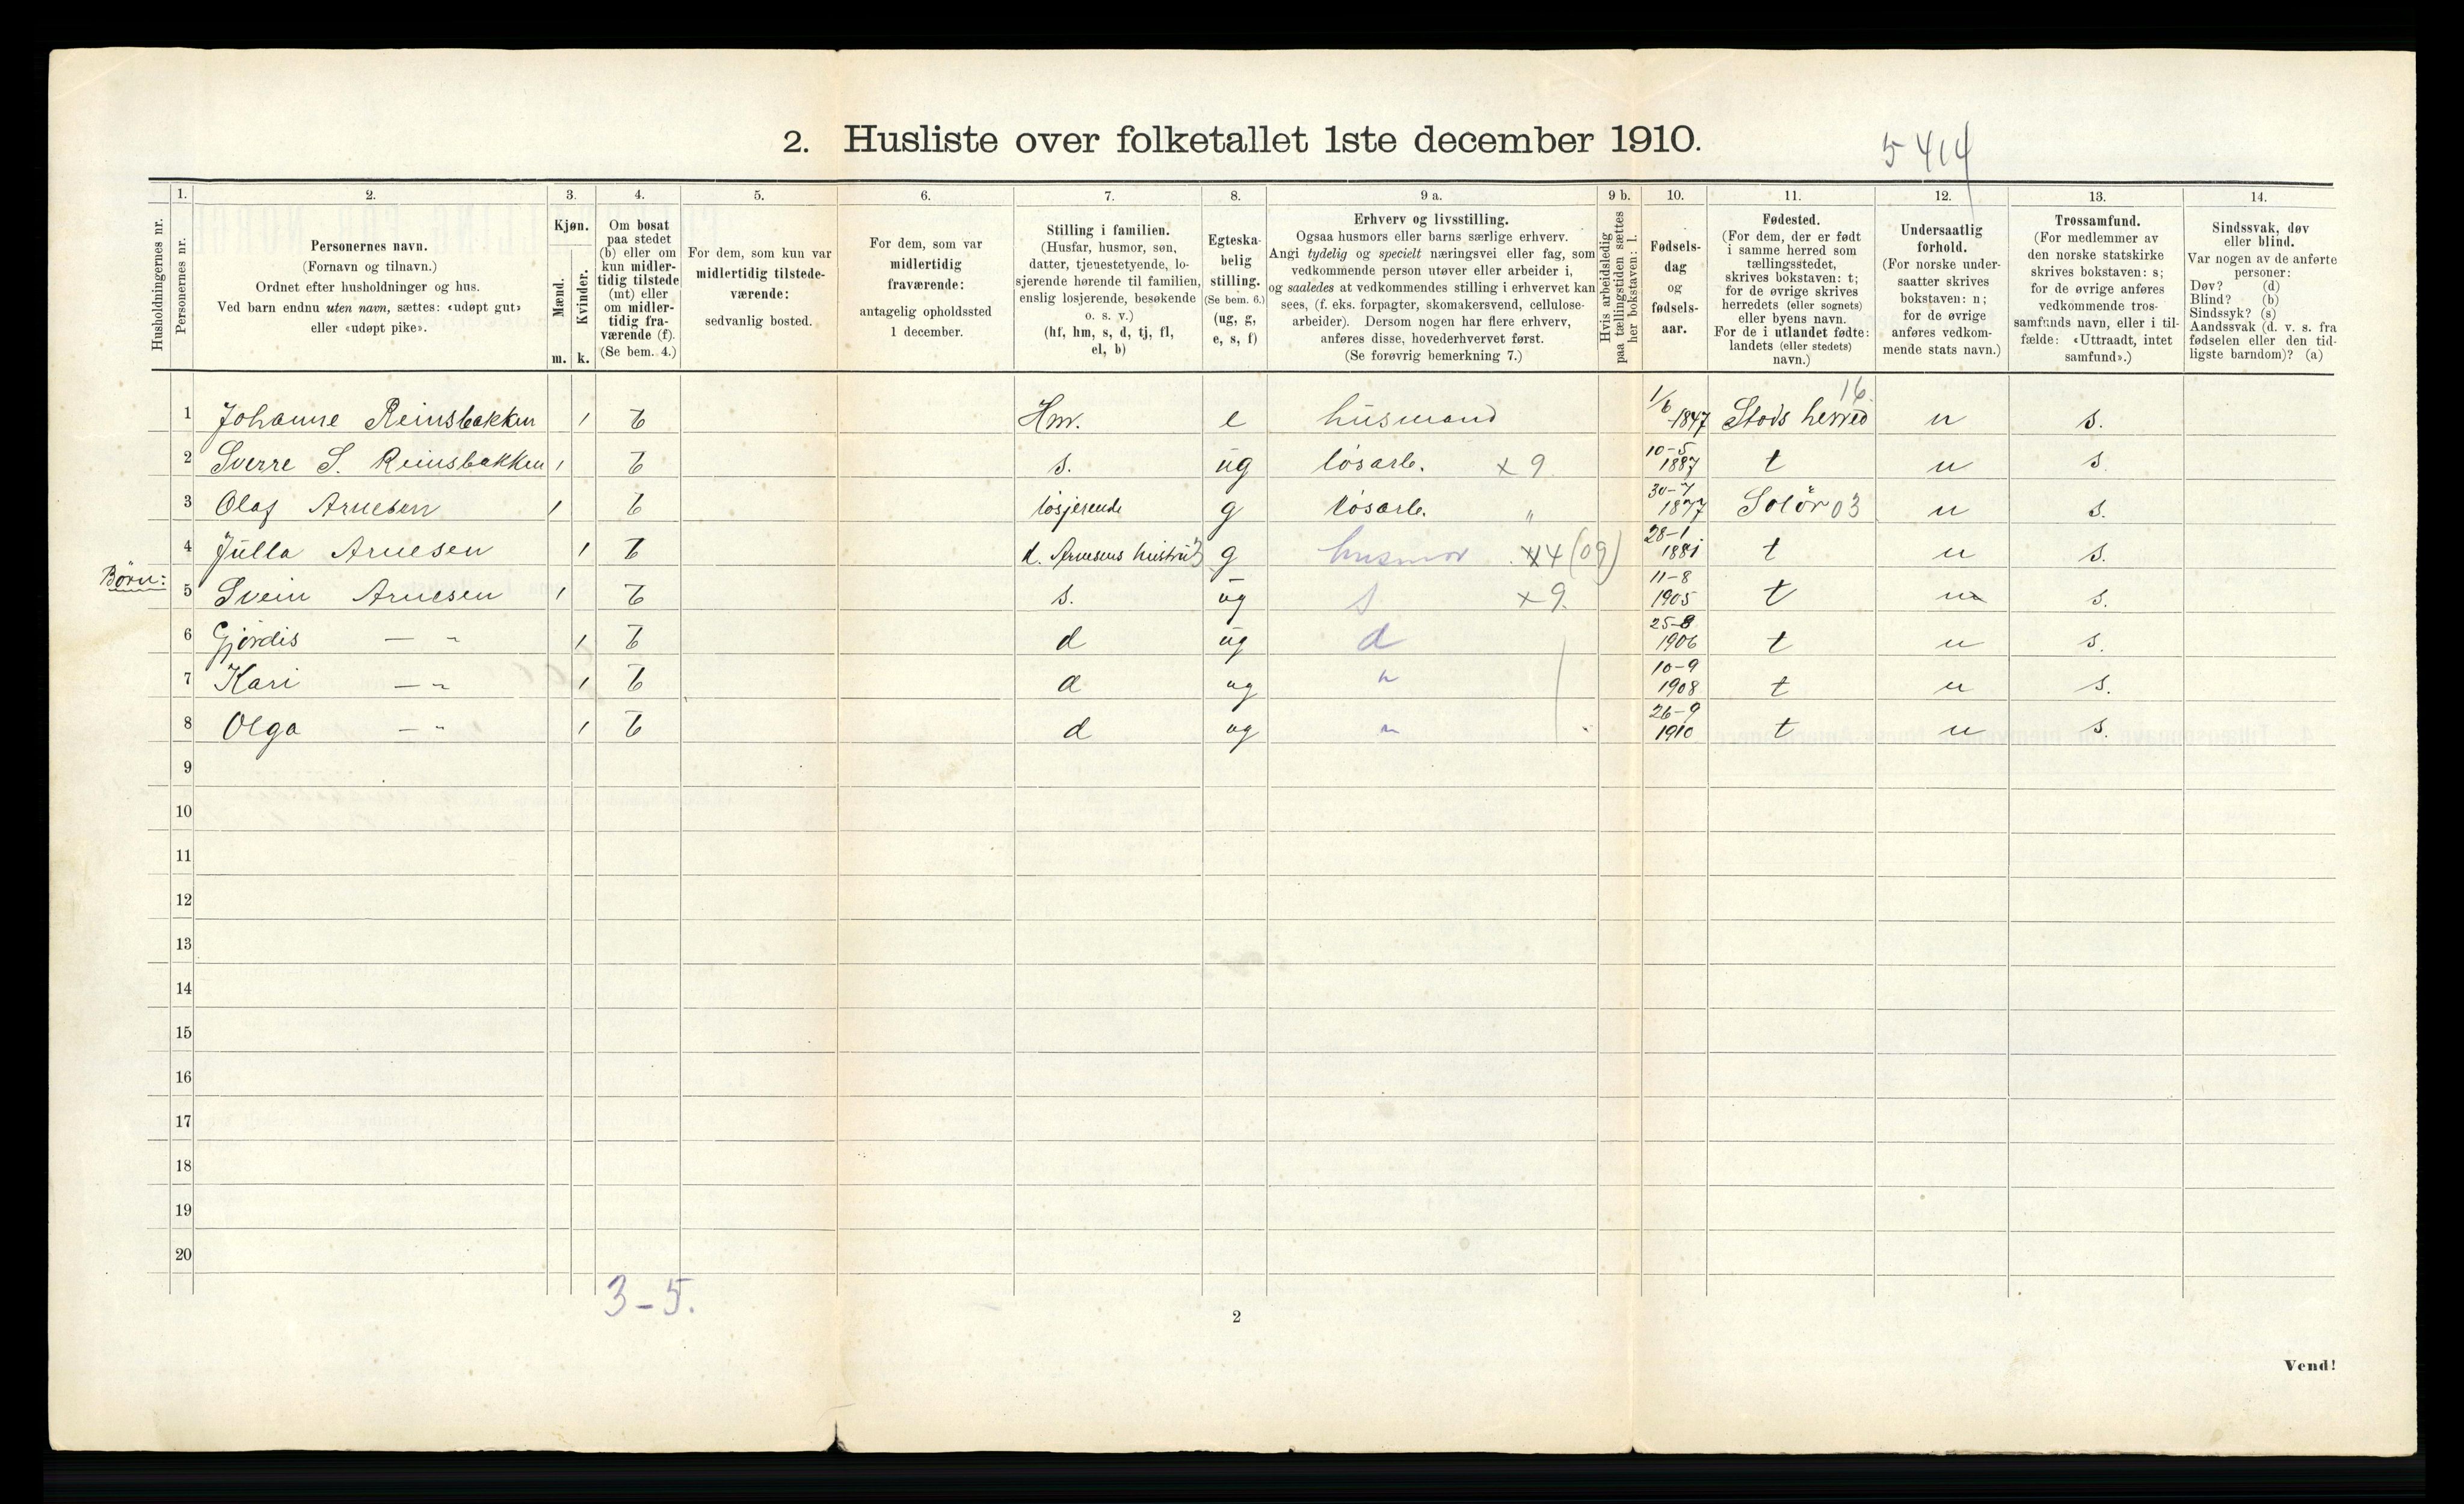 2. Husliste over folketallet 1ste december 1910.
5414
Husholdningernes nr.
1. Personernes nr.
2. Personernes navn.
(Fornavn og tilnavn.)
Ordnet efter husholdninger og hus.
Ved barn endnu uten navn, sættes: «udøpt gut»
eller «udøpt pike».
3. Kjøn.
Mænd. Kvinder.
m. k.
4. Om bosat
paa stedet
(b) eller om
kun midler-
tidig tilstede
(mt) eller
om midler-
tidig fra-
værende (f).
(Se bem. 4.)
5. For dem, som kun var
midlertidig tilstede-
værende:
sedvanlig bosted.
6. For dem, som var
midlertidig
fraværende:
antagelig opholdssted
1 december.
7. Stilling i familien.
(Husfar, husmor, søn,
datter, tjenestetyende, lo-
sjerende hørende til familien,
enslig losjerende, besøkende
o. s. v.)
(hf, hm, s, d, tj, fl,
el, b)
8. Egteska-
belig
stilling.
(Se bem. 6.)
(ug, g,
e, s, f)
9 a. Erhverv og livsstilling.
Ogsaa husmors eller barns særlige erhverv.
Angi tydelig og specielt næringsvei eller fag, som
vedkommende person utøver eller arbeider i,
og saaledes at vedkommendes stilling i erhvervet kan
sees, (f. eks. forpagter, skomakersvend, cellulose-
arbeider). Dersom nogen har flere erhverv,
anføres disse, hovederhvervet først.
(Se forøvrig bemerkning 7.)
9 b. Hvis arbeidsledig
paa tællingstiden sættes
her bokstaven: l.
10. Fødsels-
dag
og
fødsels-
aar.
11. Fødested.
(For dem, der er født
i samme herred som
tællingsstedet,
skrives bokstaven: t;
for de øvrige skrives
herredets (eller sognets)
eller byens navn.
For de i utlandet fødte:
landets (eller stedets)
navn.)
12. Undersaatlig
forhold.
(For norske under-
saatter skrives
bokstaven: n;
for de øvrige
anføres vedkom-
mende stats navn.)
13. Trossamfund.
(For medlemmer av
den norske statskirke
skrives bokstaven: s;
for de øvrige anføres
vedkommende tros-
samfunds navn, eller i til-
fælde: «Uttraadt, intet
samfund».)
14. Sindssvak, døv
eller blind.
Var nogen av de anførte
personer:
Døv? (d)
Blind? (b)
Sindssyk? (s)
Aandssvak (d. v. s. fra
fødselen eller den tid-
ligste barndom)? (a)
1 Johanne Reinsbakken 1 b Hm. e husmand 1/6 1847 Stods herred 16. n s.
2 Sverre S. Reinsbakken 1 b s. ug løsarb. x 9 10-5 1887 t n s.
3 Olaf Arnesen 1 b losjerende g løsarb. " 30-7 1877 Solør 03 n s.
4 Julla Arnesen 1 b d. Arnesens hustru g husmor x4 (09) 28-1 1881 t n s.
Børn:
5 Svein Arnesen 1 b s. ug s x 9. 11-8 1905 t n s.
6 Gjørdis — " 1 b d ug d 25-8 1906 t n s.
7 Kari — " 1 b d ug " 10-9 1908 t n s.
8 Olga — " 1 b d ug " 26-9 1910 t n s.
9
10
11
12
13
14
15
16
17
18
19
20
3-5.
2
Vend!